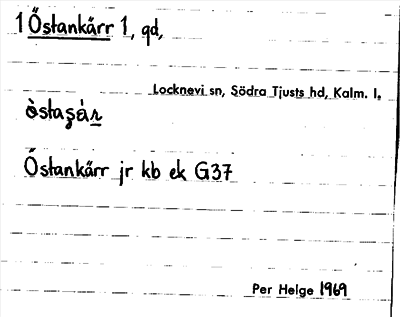 1 Östankärr 1, gd,
Locknevi sn, Södra Tjusts hd, Kalm. l.
òstaʂàr
Östankärr jr kb ek G37
Per Helge 1969